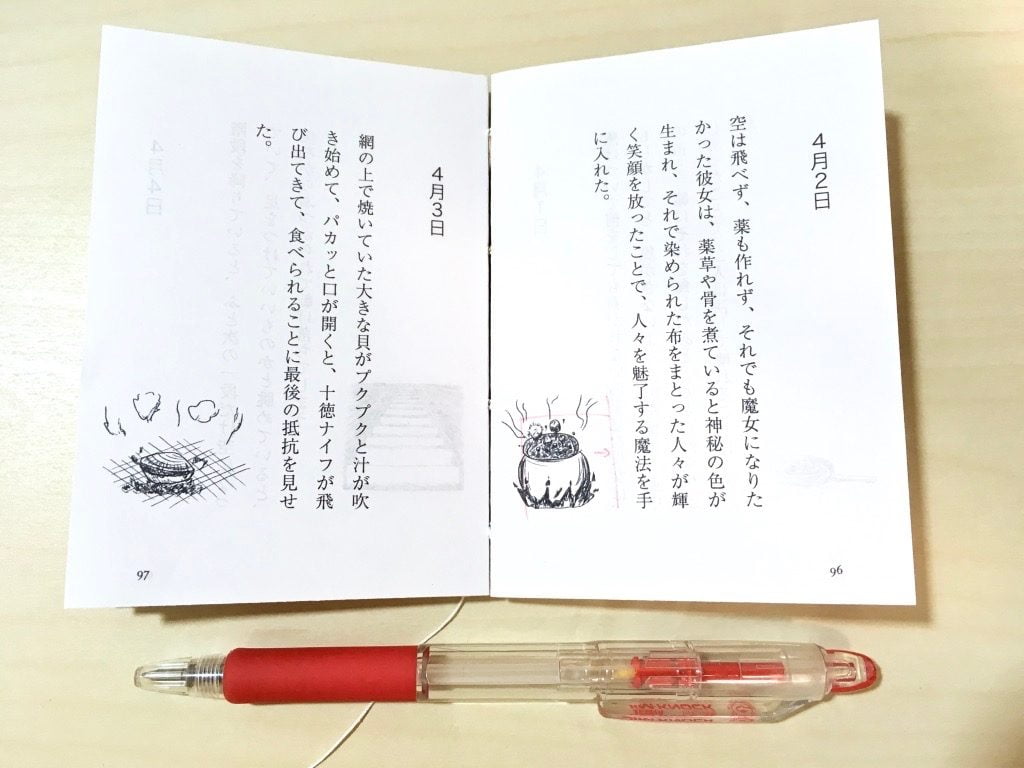 4月2日
空は飛べず、薬も作れず、それでも魔女になりた
かった彼女は、薬草や骨を煮ていると神秘の色が
生まれ、それで染められた布をまとった人々が輝
く笑顔を放ったことで、人々を魅了する魔法を手
に入れた。
96
4月3日
網の上で焼いていた大きな貝がプクプクと汁が吹
き始めて、パカッと口が開くと、十徳ナイフが飛
び出てきて、食べられることに最後の抵抗を見せ
た。
97
KNOCK